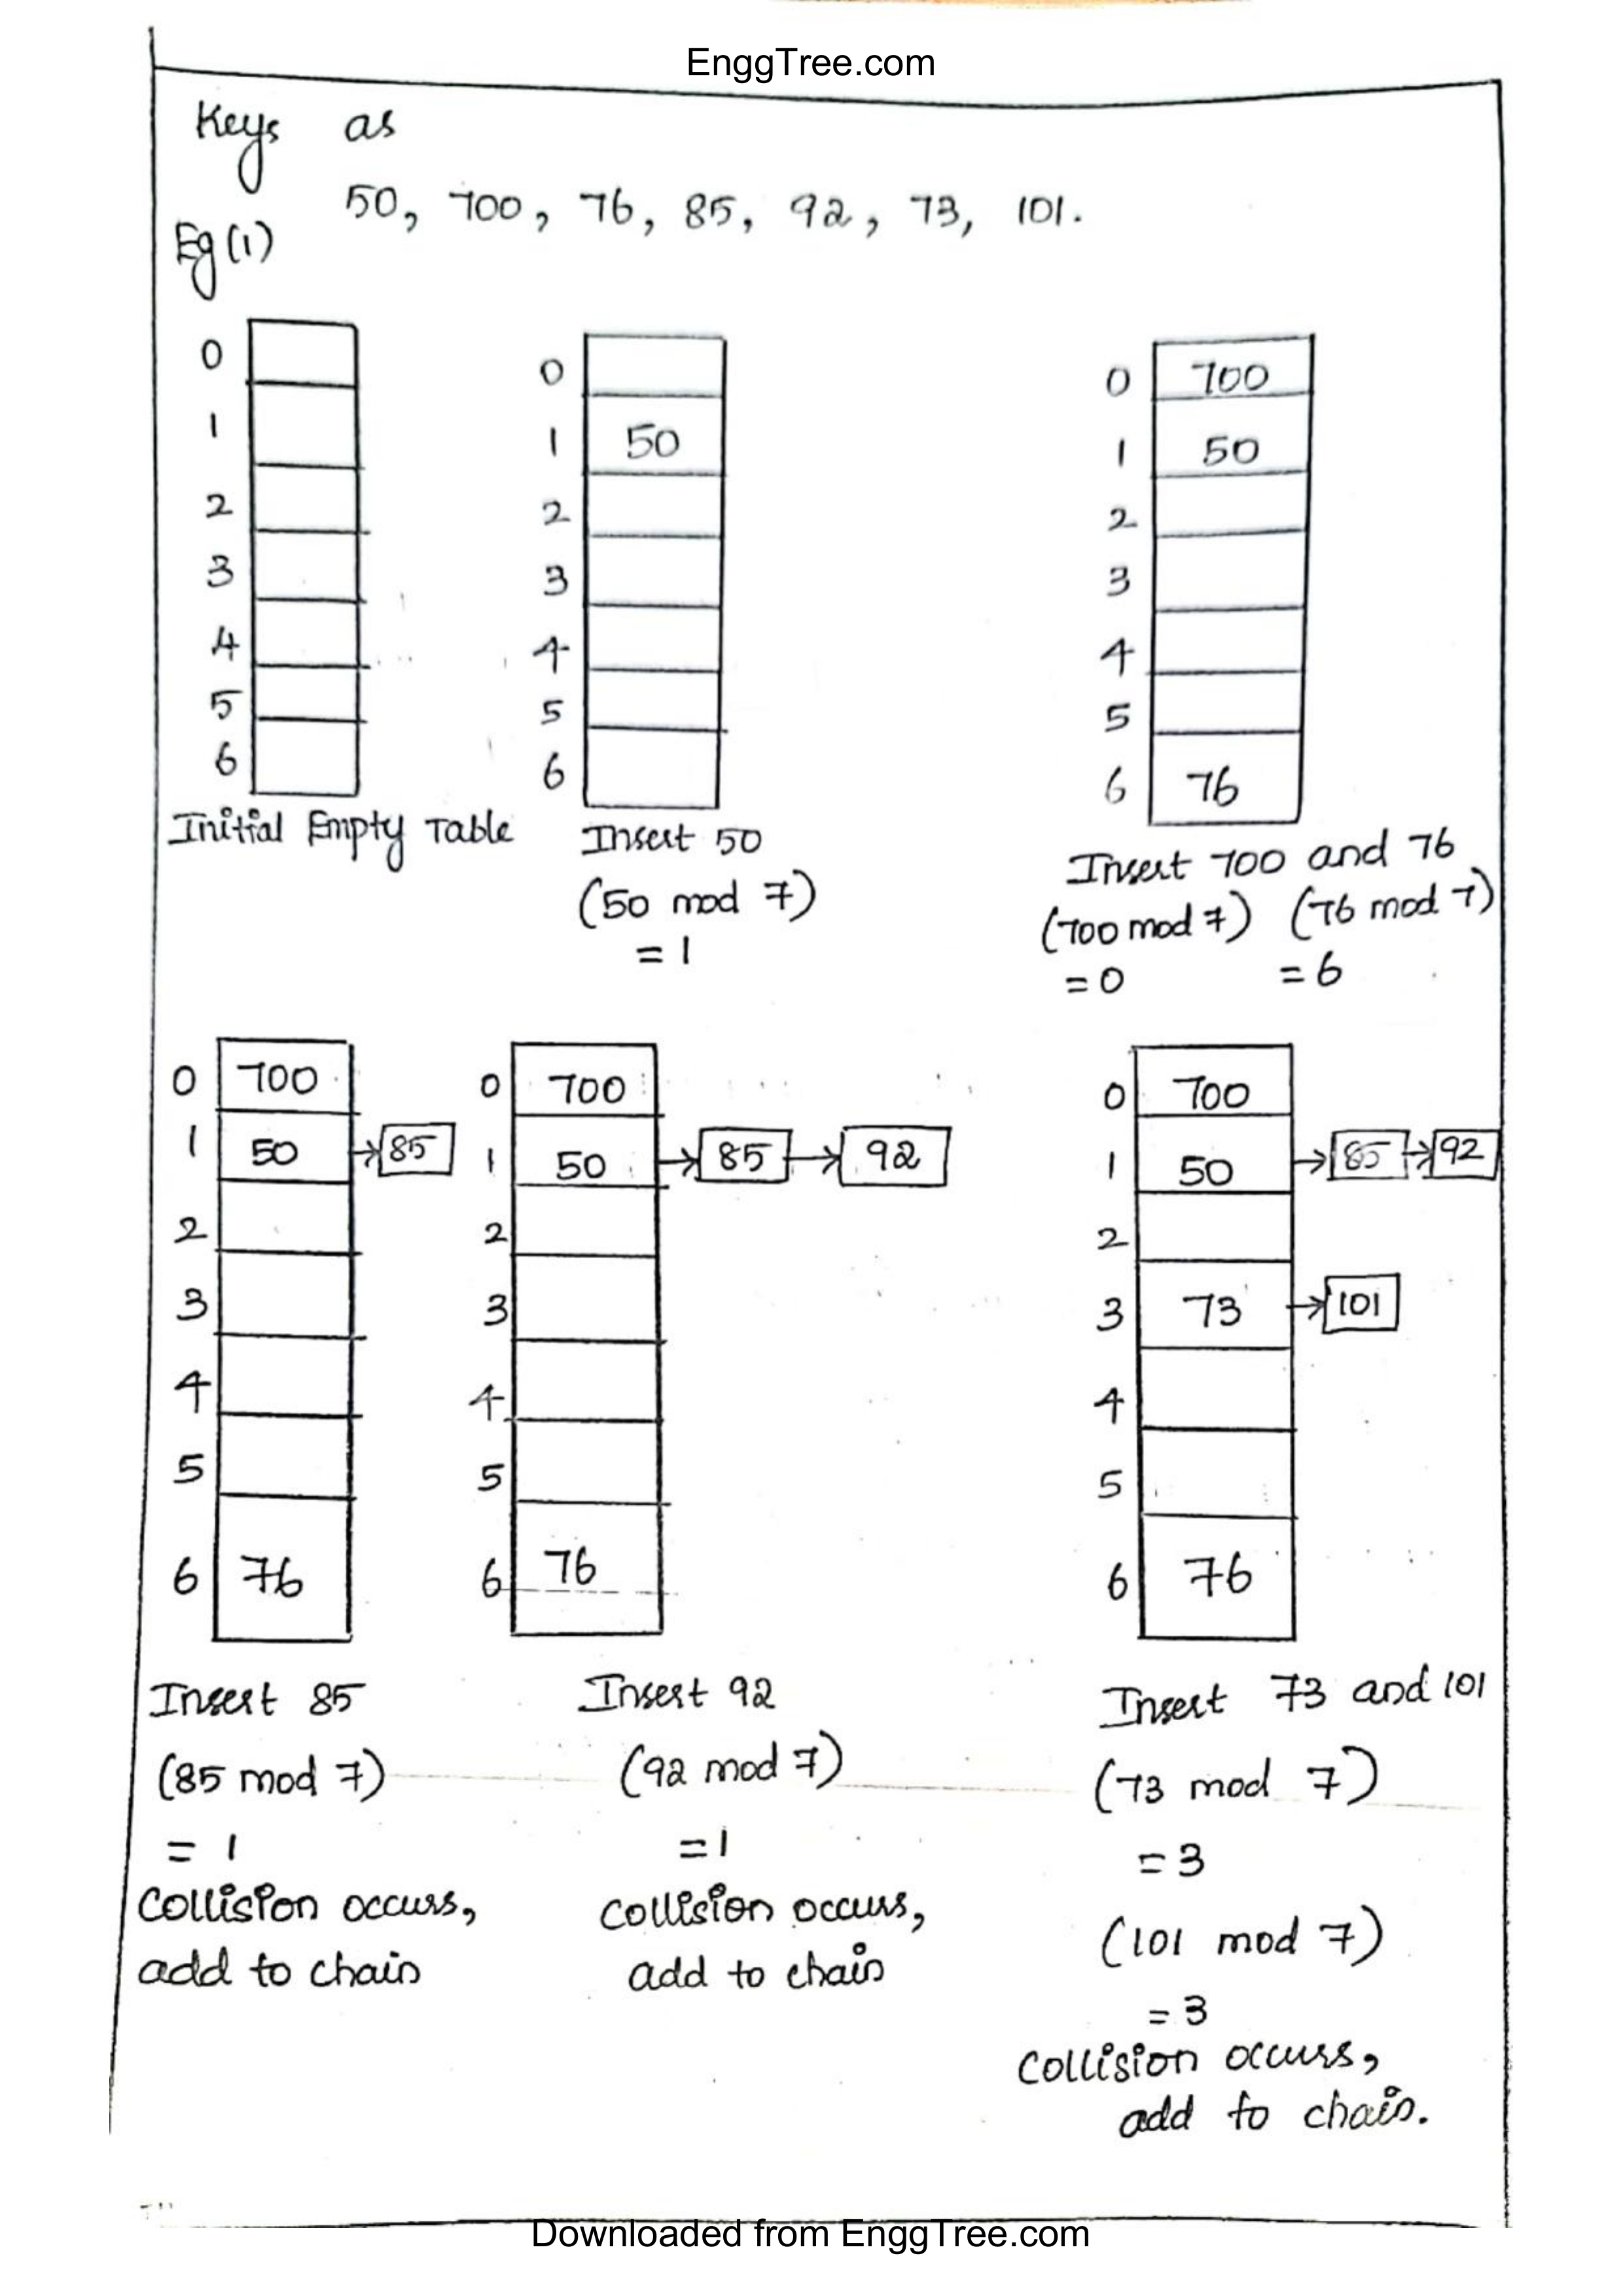 EnggTree.com
Keys as
50, 700, 76, 85, 92, 73, 101.
Eg(1)
0
1
2
3
4
5
6
Initial Empty Table
0
1 50
2
3
4
5
6
Insert 50
(50 mod 7)
= 1
0 700
1 50
2
3
4
5
6 76
Insert 700 and 76
(700 mod 7) (76 mod 7)
= 0 = 6
0 700
1 50 → 85
2
3
4
5
6 76
Insert 85
(85 mod 7)
= 1
Collision occurs,
add to chain
0 700
1 50 → 85 → 92
2
3
4
5
6 76
Insert 92
(92 mod 7)
= 1
Collision occurs,
add to chain
0 700
1 50 → 85 → 92
2
3 73 → 101
4
5
6 76
Insert 73 and 101
(73 mod 7)
= 3
(101 mod 7)
= 3
Collision occurs,
add to chain.
Downloaded from EnggTree.com